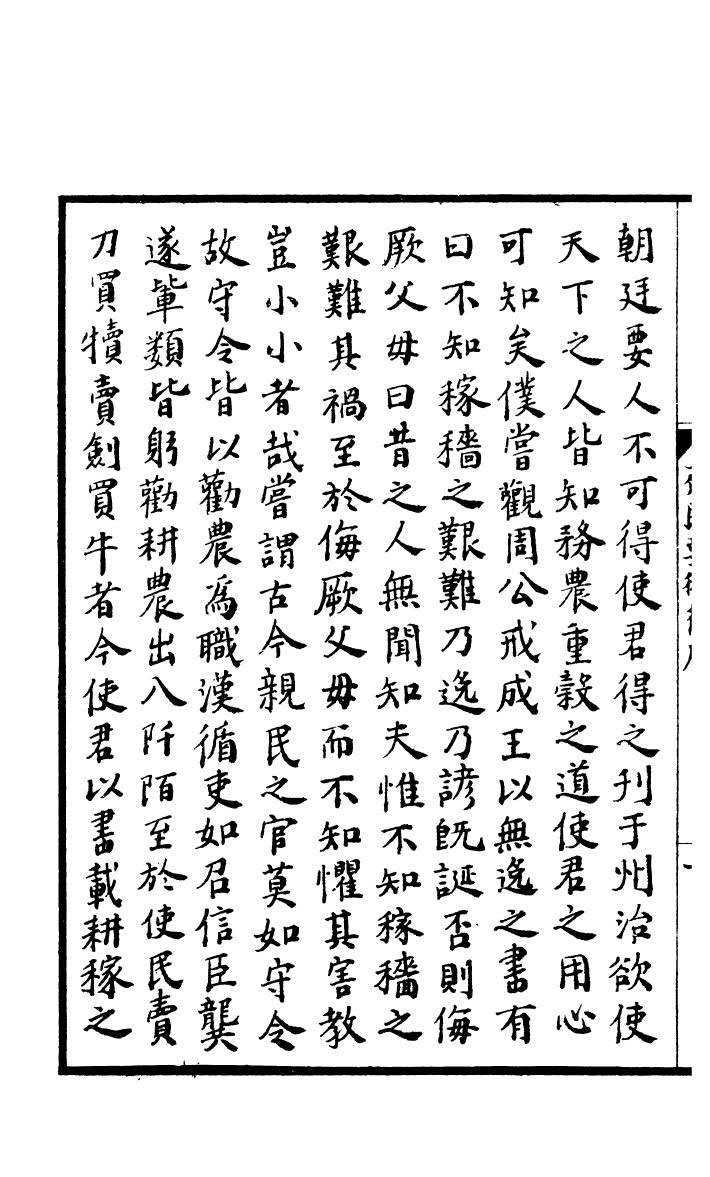 朝廷要人不可得使君得之刋于州治欲使
天下之人皆知務農重糓之道使君之用心
可知矣僕嘗觀周公戒成王以無逸之書有
曰不知稼穡之艱難乃逸乃諺旣誕否則侮
厥父母曰昔之人無聞知夫惟不知稼穡之
艱難其禍至於侮厥父毋而不知懼其害教
豈小小者哉嘗謂古今親民之官莫如守令
故守令皆以勸農爲職漢循吏如召信臣龔
遂軰類皆躬勸耕農出入阡陌至於使民賣
刀買犢賣劍買牛者今使君以書載耕稼之